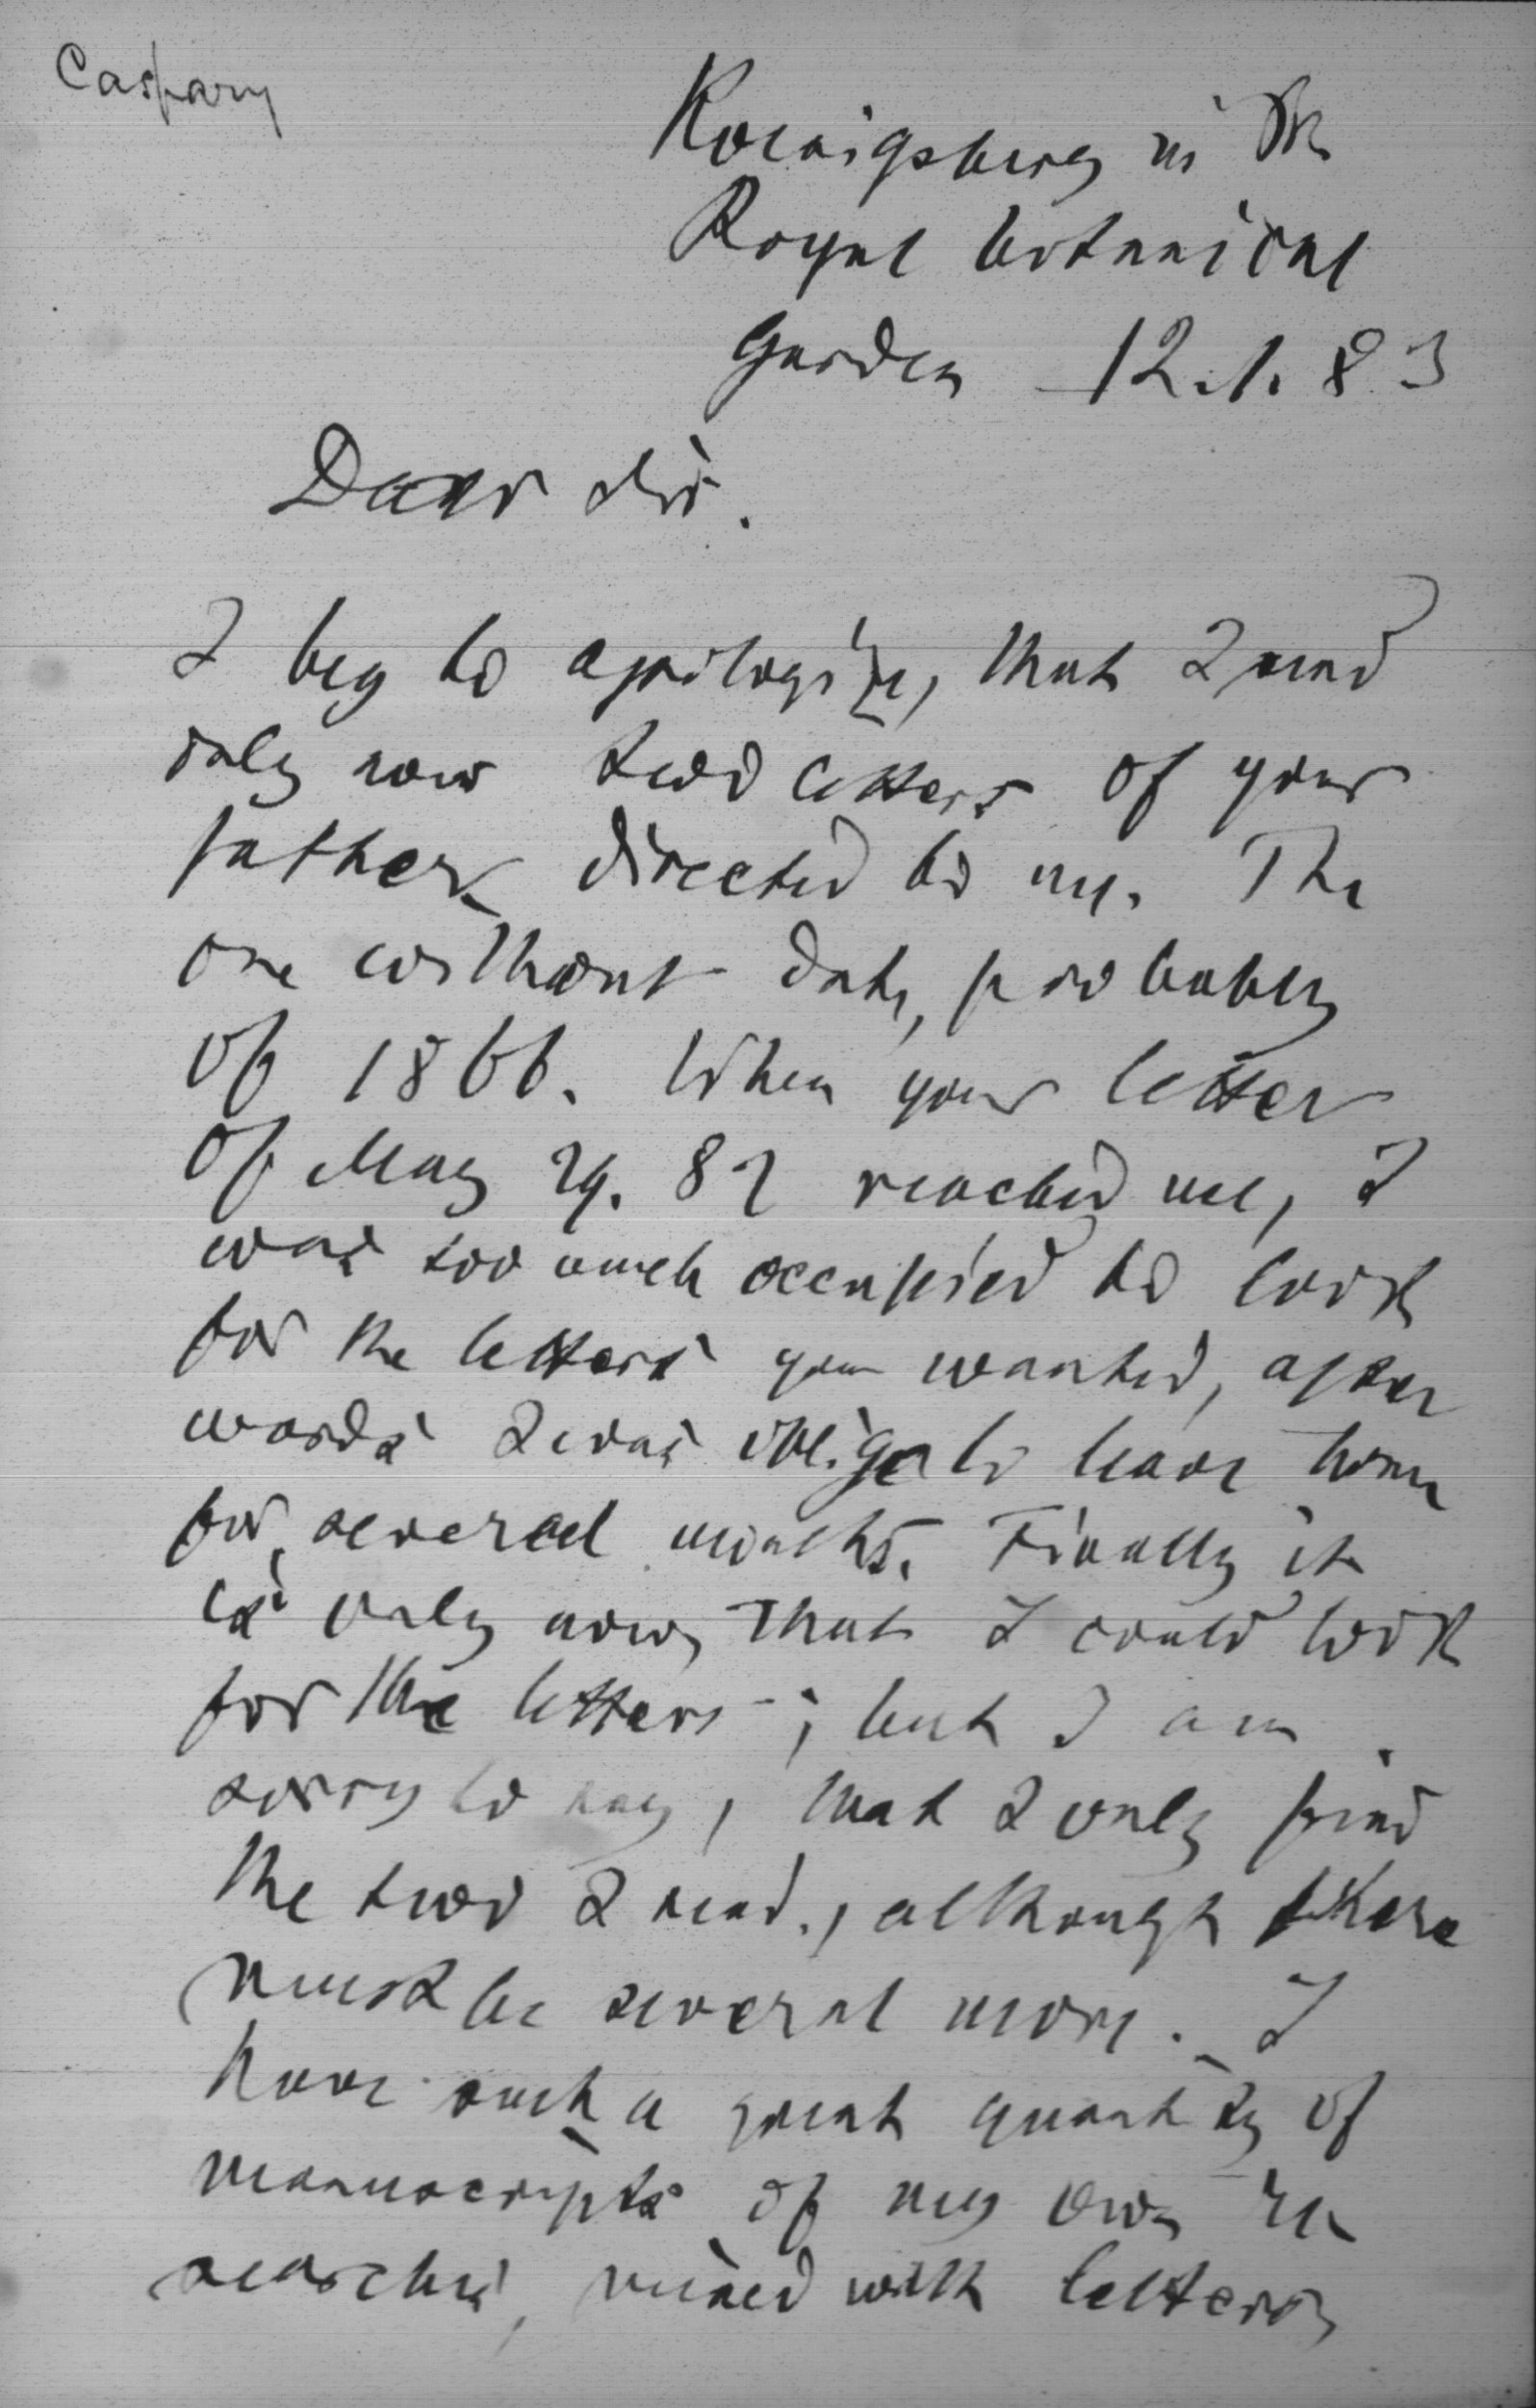 Caspary
Koenigsberg in Pr
Royal botanical
Garden 12.1.83
Dear Sir.
I beg to apologize, that I send
only now two letters of your
father directed to me. The
one without date, probably
of 1866. When your letter
of May 29. 82 reached me, I
was too much occupied to look
for the letters you wanted, after
wards I was oblige to leave home
for several months. Finally it
is only now, that I could look
for the letters; but I am
sorry to say, that I only find
the two I send, although there
must be several more. I
have such a great quantity of
manuscripts of my own re
searches, mixed with letters